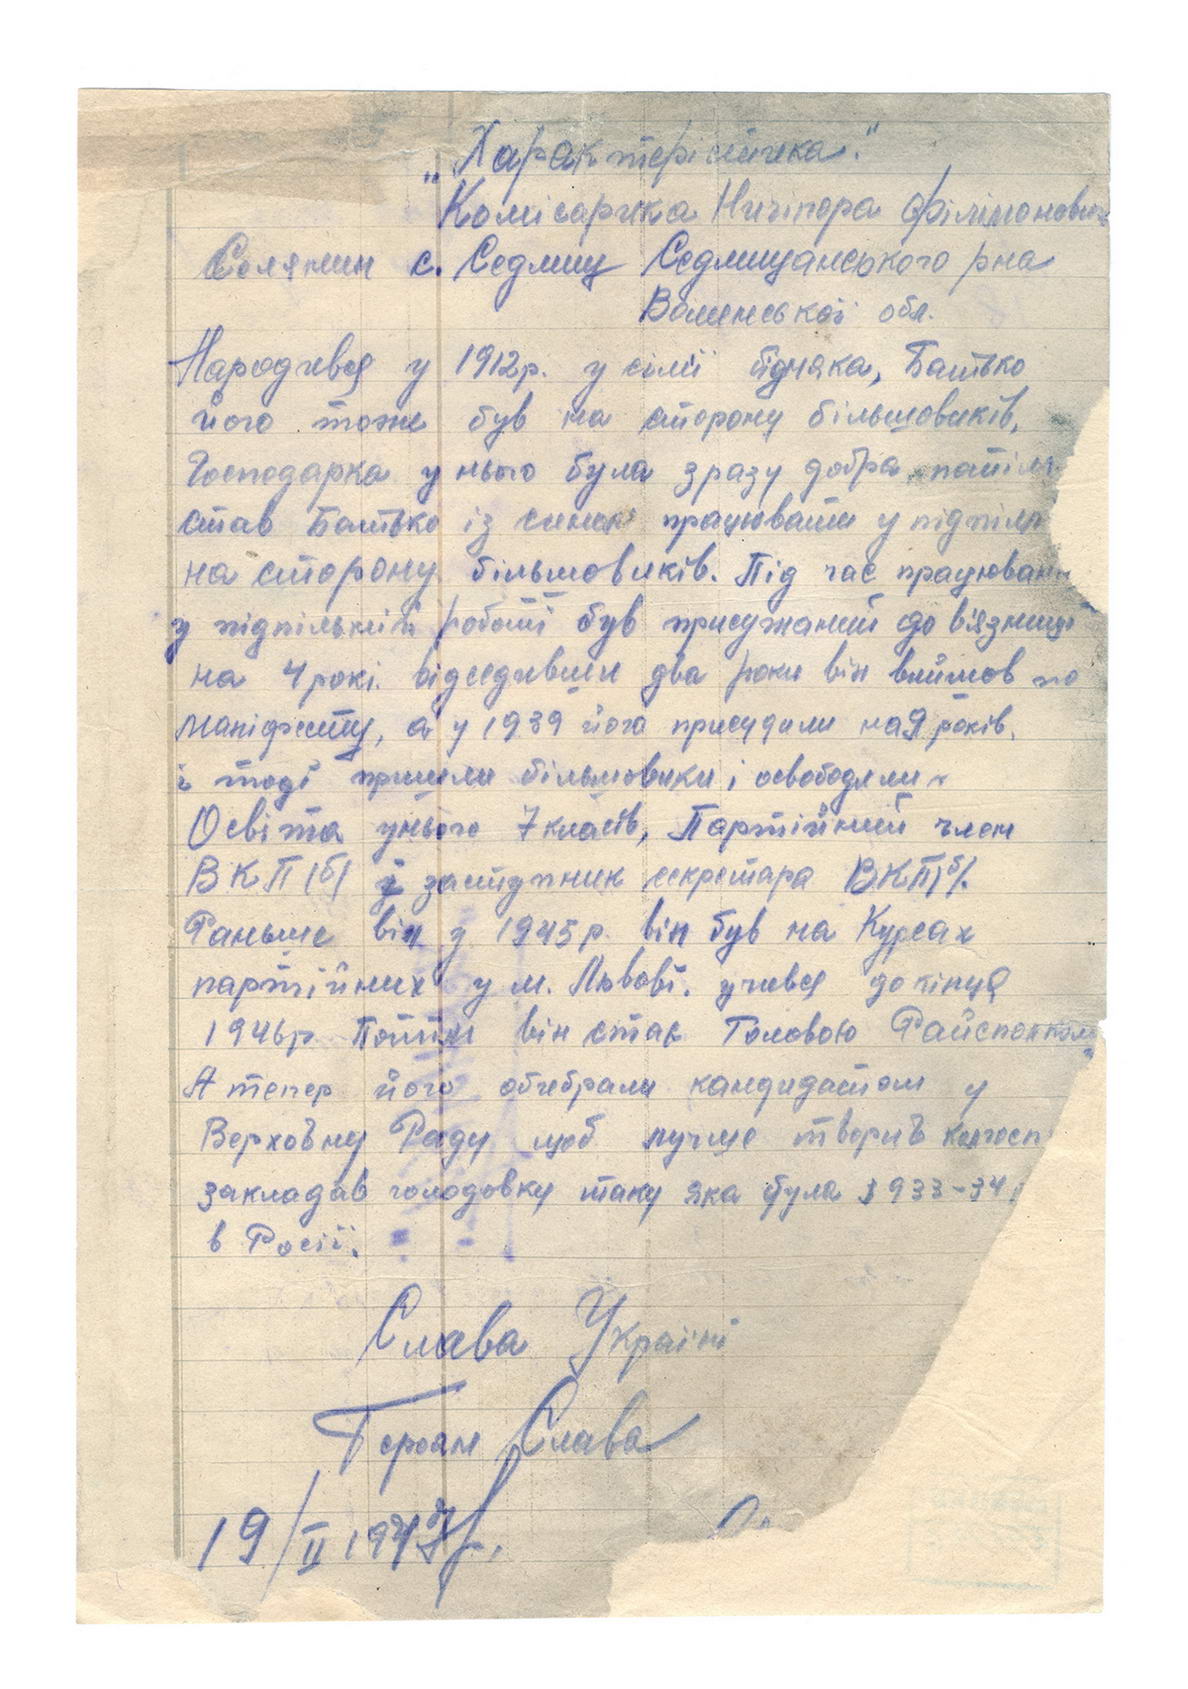 „Характерістичка."
Комісарика Ничіпора Філімонович
Селянин с. Седлищ Седлищанського рна
Волинської обл.
Народився у 1912р. у сімії бідняка, Батько
його тоже був на сторону більшовиків,
Господарка у нього була зразу добра потім
став Батько із сином працювати у підпілю
на сторону більшовиків. Під час працюван
у підпількій роботі був присужаний до вязниці
на 4 рокі. відседивши два роки він вийшов по
маніфесту, а у 1939 його присудили на 9 років.
і тоді пришли більшовики і освободили
Освіта унього 7 класів, Партійний член
ВКП(б) й заступник секретара ВКП(б).
Раньше він у 1945р. він був на Курсах
партійних у м. Львові. учився до кінця
1946р. Потім він став Головою Райсполком
А тепер його обибрали кандидатом у
Верховну Раду щоб лучше творив колгосп
закладав голодовку таку яка була 1933-34
в Росії.
Слава Україні
Героям Слава
19/II 1947р.